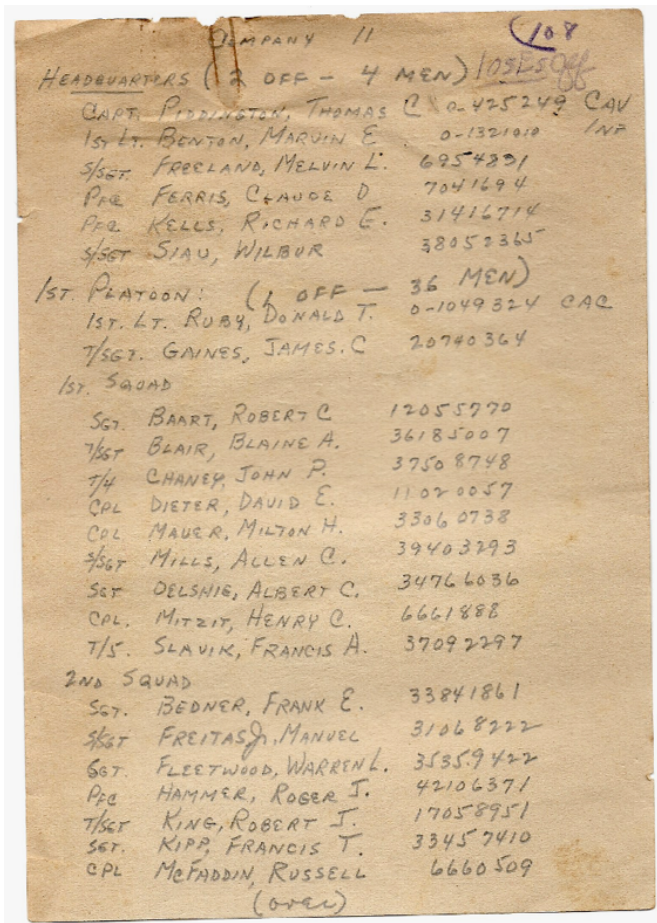 108
COMPANY 11
HEADQUARTERS (2 OFF - 4 MEN) 10SEsOff
CAPT. PIDDINGTON, THOMAS C 0-425249 CAV
1ST LT. BENTON, MARVIN E 0-1321010 INF
S/SGT. FREELAND, MELVIN L. 6954831
PFC FERRIS, CLAUDE D 7041694
PFC KELLS, RICHARD E. 31416714
S/SGT SIAU, WILBUR 38052365
1ST. PLATOON: (1 OFF - 36 MEN)
1ST. LT. RUBY, DONALD T. 0-1049324 CAC
T/SGT. GAINES, JAMES. C 20740364
1ST. SQUAD
SGT. BAART, ROBERT C 12055770
T/SGT BLAIR, BLAINE A. 36185007
T/4 CHANEY, JOHN P. 37508748
CPL DIETER, DAVID E. 11020057
CPL MAUER, MILTON H. 33060738
S/SGT MILLS, ALLEN C. 39403293
SGT DELSHIE, ALBERT C. 34766036
CPL. MITZIT, HENRY C. 6661888
T/5. SLAVIK, FRANCIS A. 37092297
2ND SQUAD
SGT. BEDNER, FRANK E. 33841861
S/SGT FREITAS Jr, MANUEL 31068222
SGT. FLEETWOOD, WARREN L. 35359422
PFC HAMMER, ROGER J. 42106371
T/SGT KING, ROBERT J. 17058951
SGT. KIPP, FRANCIS T. 33457410
CPL MCFADDIN, RUSSELL 6660509
(over)